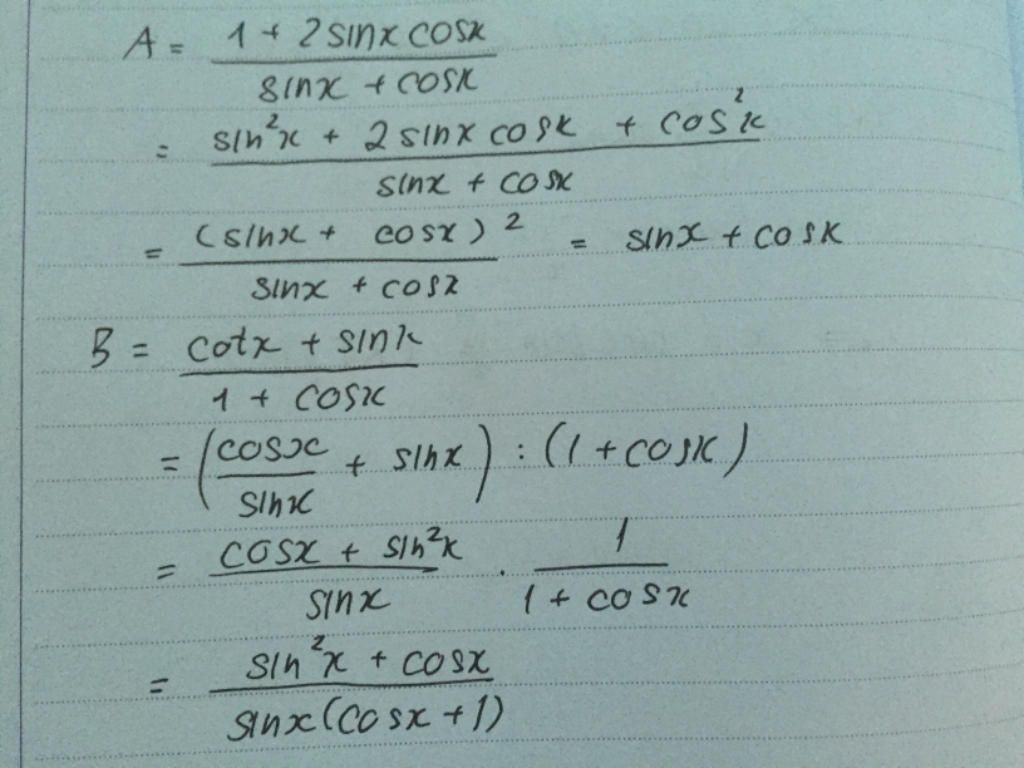 A = (1 + 2 sinx cosx) / (sinx + cosx)
= (sin²x + 2 sinx cosx + cos²x) / (sinx + cosx)
= (sinx + cosx)² / (sinx + cosx) = sinx + cosx
B = (cotx + sinx) / (1 + cosx)
= (cosx / sinx + sinx) : (1 + cosx)
= (cosx + sin²x) / sinx . 1 / (1 + cosx)
= (sin²x + cosx) / (sinx(cosx + 1))